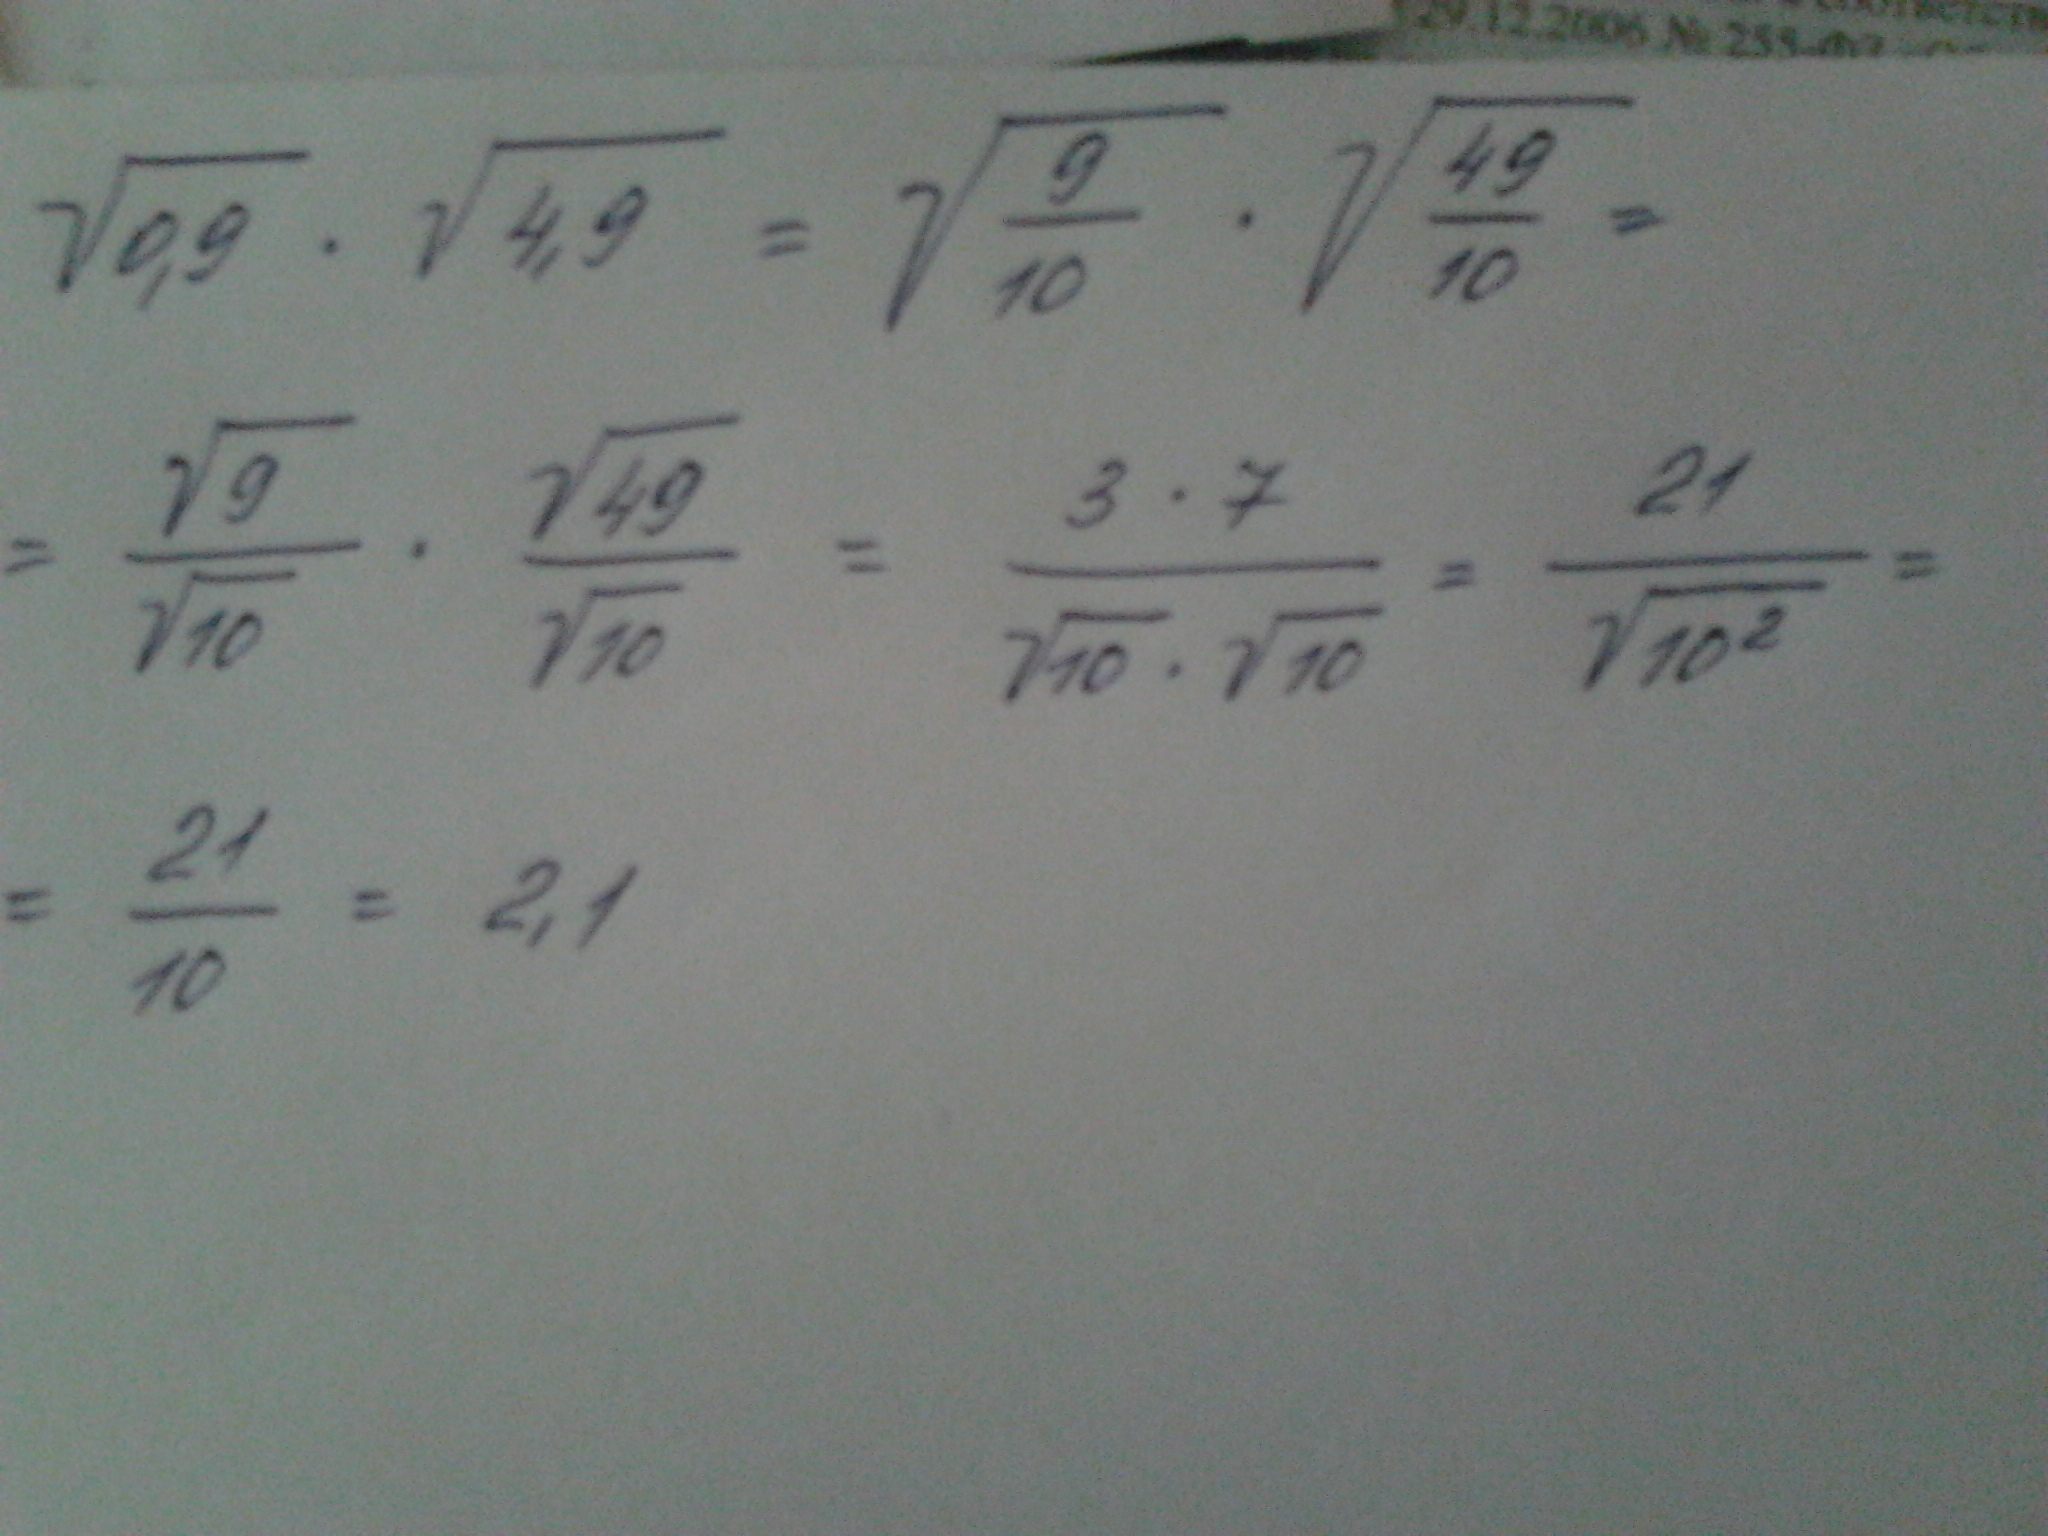 29.12.2006 № 255-ФЗ
√0,9 · √4,9 = √(9/10) · √(49/10) =
= √9/√10 · √49/√10 = (3 · 7)/(√10 · √10) = 21/√10² =
= 21/10 = 2,1